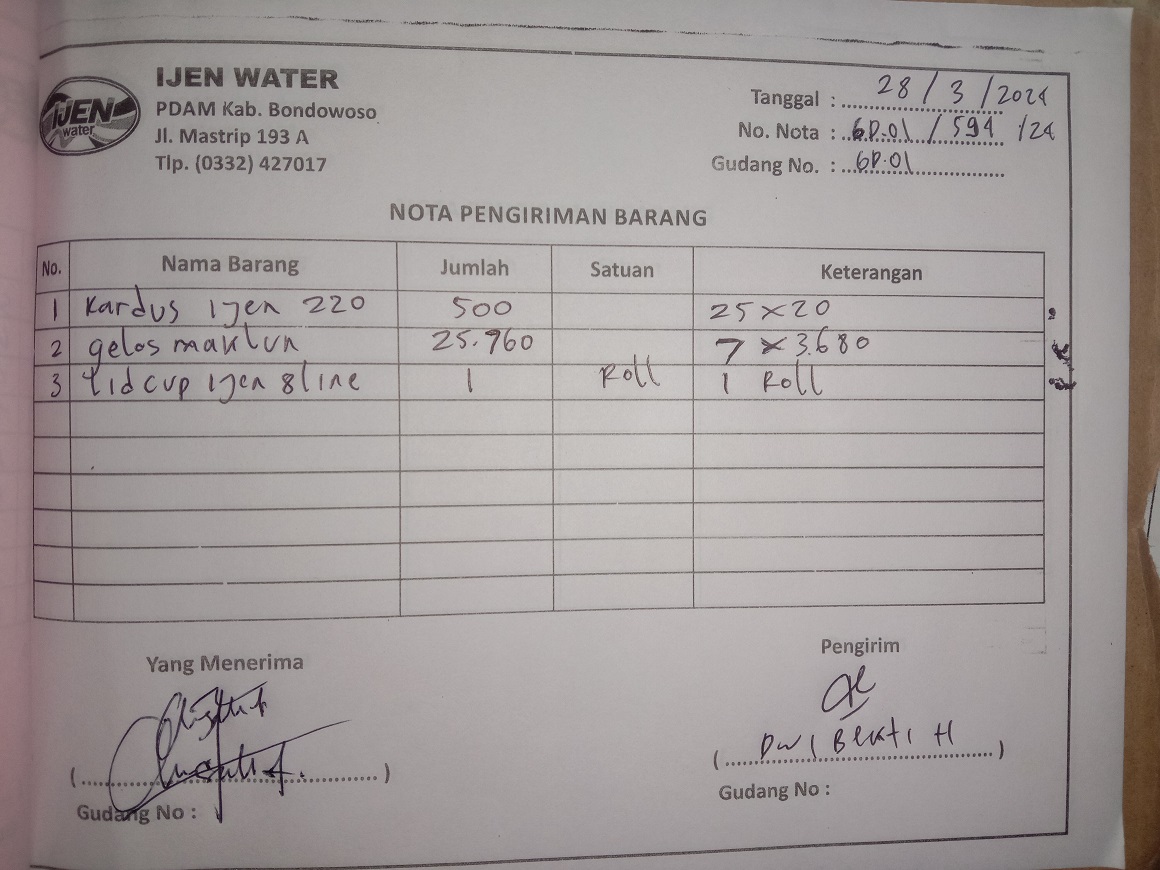 IJEN WATER
PDAM Kab. Bondowoso
Jl. Mastrip 193 A
Tlp. (0332) 427017
IJEN
water
Tanggal : 28 / 3 / 2024
No. Nota : GD.01 / 594 / 24
Gudang No. : GD.01
NOTA PENGIRIMAN BARANG
No. Nama Barang Jumlah Satuan Keterangan
1 Kardus Ijen 220 500 25 x 20
2 gelas maklun 25.760 7 x 3.680
3 Lid cup Ijen 8 line 1 Roll 1 Roll
Yang Menerima
Pengirim
Dwi Bekti H
(..............................)
(..............................)
Gudang No :
Gudang No :